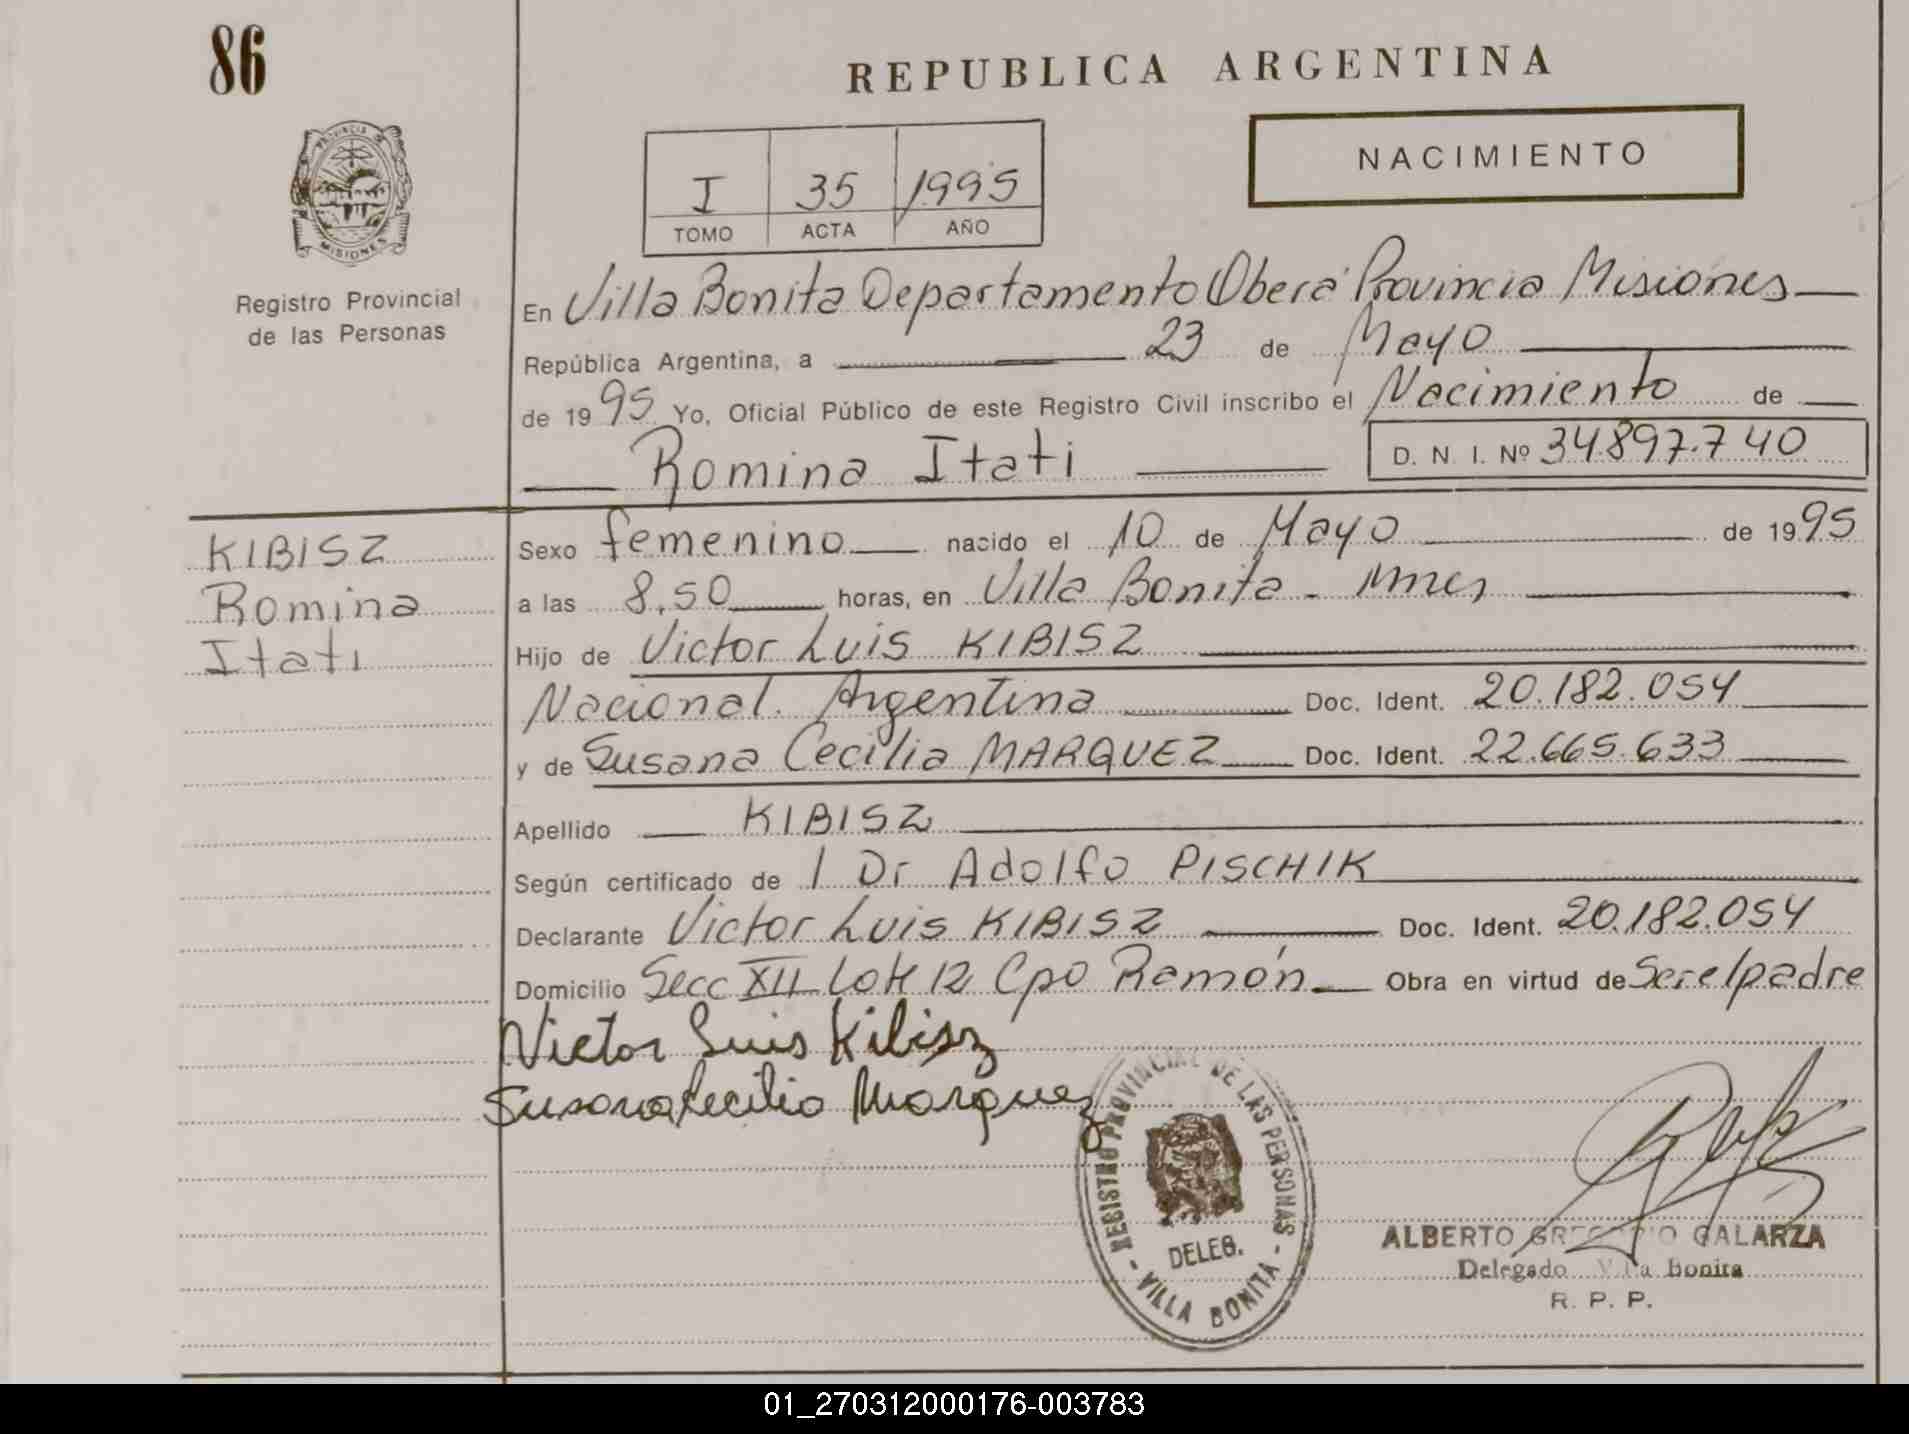 86
REPUBLICA ARGENTINA
PROVINCIA DE
MISIONES
NACIMIENTO
I 35 1995
TOMO ACTA AÑO
Registro Provincial
de las Personas
En Villa Bonita Departamento Oberá Provincia Misiones
República Argentina, a 23 de Mayo
de 1995 Yo, Oficial Público de este Registro Civil inscribo el Nacimiento de
Romina Itati D. N. I. Nº 34.897.740
KIBISZ
Romina
Itati
Sexo femenino nacido el 10 de Mayo de 1995
a las 8,50 horas, en Villa Bonita - Mnes
Hijo de Victor Luis KIBISZ
Nacional. Argentina Doc. Ident. 20.182.054
y de Susana Cecilia MARQUEZ Doc. Ident. 22.665.633
Apellido KIBISZ
Según certificado de / Dr Adolfo PISCHIK
Declarante Victor Luis KIBISZ Doc. Ident. 20.182.054
Domicilio Secc XII Lote 12 Cpo Ramón Obra en virtud de Ser el padre
Victor Luis Kibisz
Susana Cecilia Marquez
REGISTRO PROVINCIAL DE LAS PERSONAS
DELEG.
- VILLA BONITA -
ALBERTO GREGORIO GALARZA
Delegado Villa Bonita
R. P. P.
01_270312000176-003783